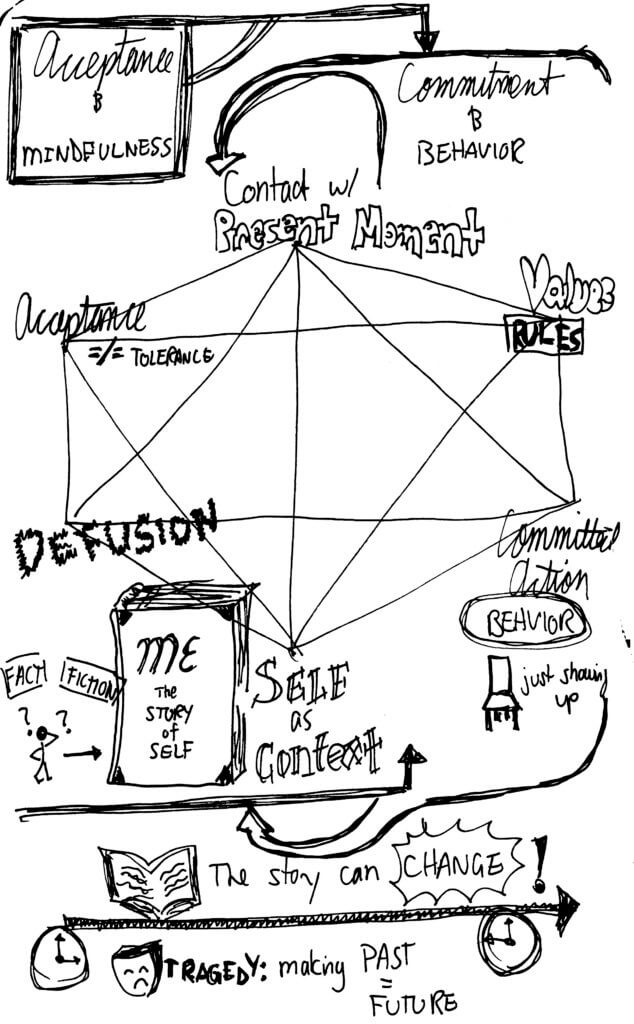 Acceptance
&
MINDFULNESS
Commitment
&
BEHAVIOR
Contact w/
Present Moment
Acceptance
=/= TOLERANCE
Values
RULES
DEFUSION
Committed
Action
BEHVIOR
just showing
up
FACT?
FICTION
? ?
ME
THE
STORY
of
SELF
SELF
as
Context
The story can CHANGE!
TRAGEDY: making PAST
=
FUTURE